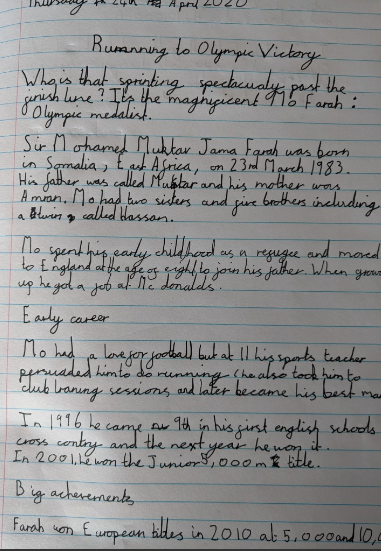 Thursday 24th April 2020
Runanning to Olympic Victory
Who is that sprinting spectacualy past the
finish line? It's the magnificent Mo Farah:
Olympic medalist.
Sir Mohamed Muktar Jama Farah was born
in Somalia, East Africa, on 23rd March 1983.
His father was called Muktar and his mother was
Amran. Mo had two sisters and five brothers including
a twin, called Hassan.
Mo spent his early childhood as a refugee and moved
to England at the age of eight to join his father. When grown
up he got a job at Mc donalds.
Early career
Mo had a love for football but at 11 his sports teacher
persuaded him to do running (he also took him to
club traning sessions, and later became his best ma
In 1996 he came 9th in his first english schools
cross contry and the next year he won it.
In 2001, he won the Junior 5,000m title.
Big achevements
Farah won European titles in 2010 at 5,000 and 10,0